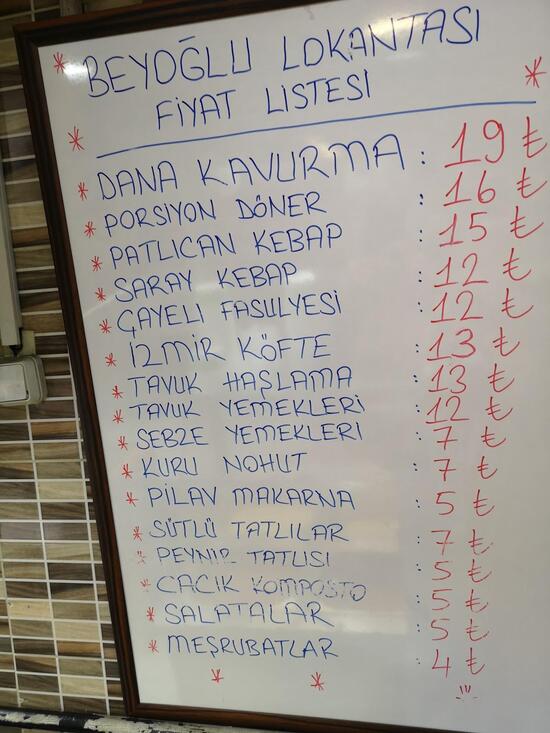 BEYOĞLU LOKANTASI
FİYAT LİSTESİ
* DANA KAVURMA : 19 ₺
* PORSİYON DÖNER : 16 ₺
* PATLICAN KEBAP : 15 ₺
* SARAY KEBAP : 12 ₺
* ÇAYELİ FASULYESİ : 12 ₺
* İZMİR KÖFTE : 13 ₺
* TAVUK HAŞLAMA : 13 ₺
* TAVUK YEMEKLERİ : 12 ₺
* SEBZE YEMEKLERİ : 7 ₺
* KURU NOHUT : 7 ₺
* PİLAV MAKARNA : 5 ₺
* SÜTLÜ TATLILAR : 7 ₺
* PEYNİR TATLISI : 5 ₺
* CACIK KOMPOSTO : 5 ₺
* SALATALAR : 5 ₺
* MEŞRUBATLAR : 4 ₺